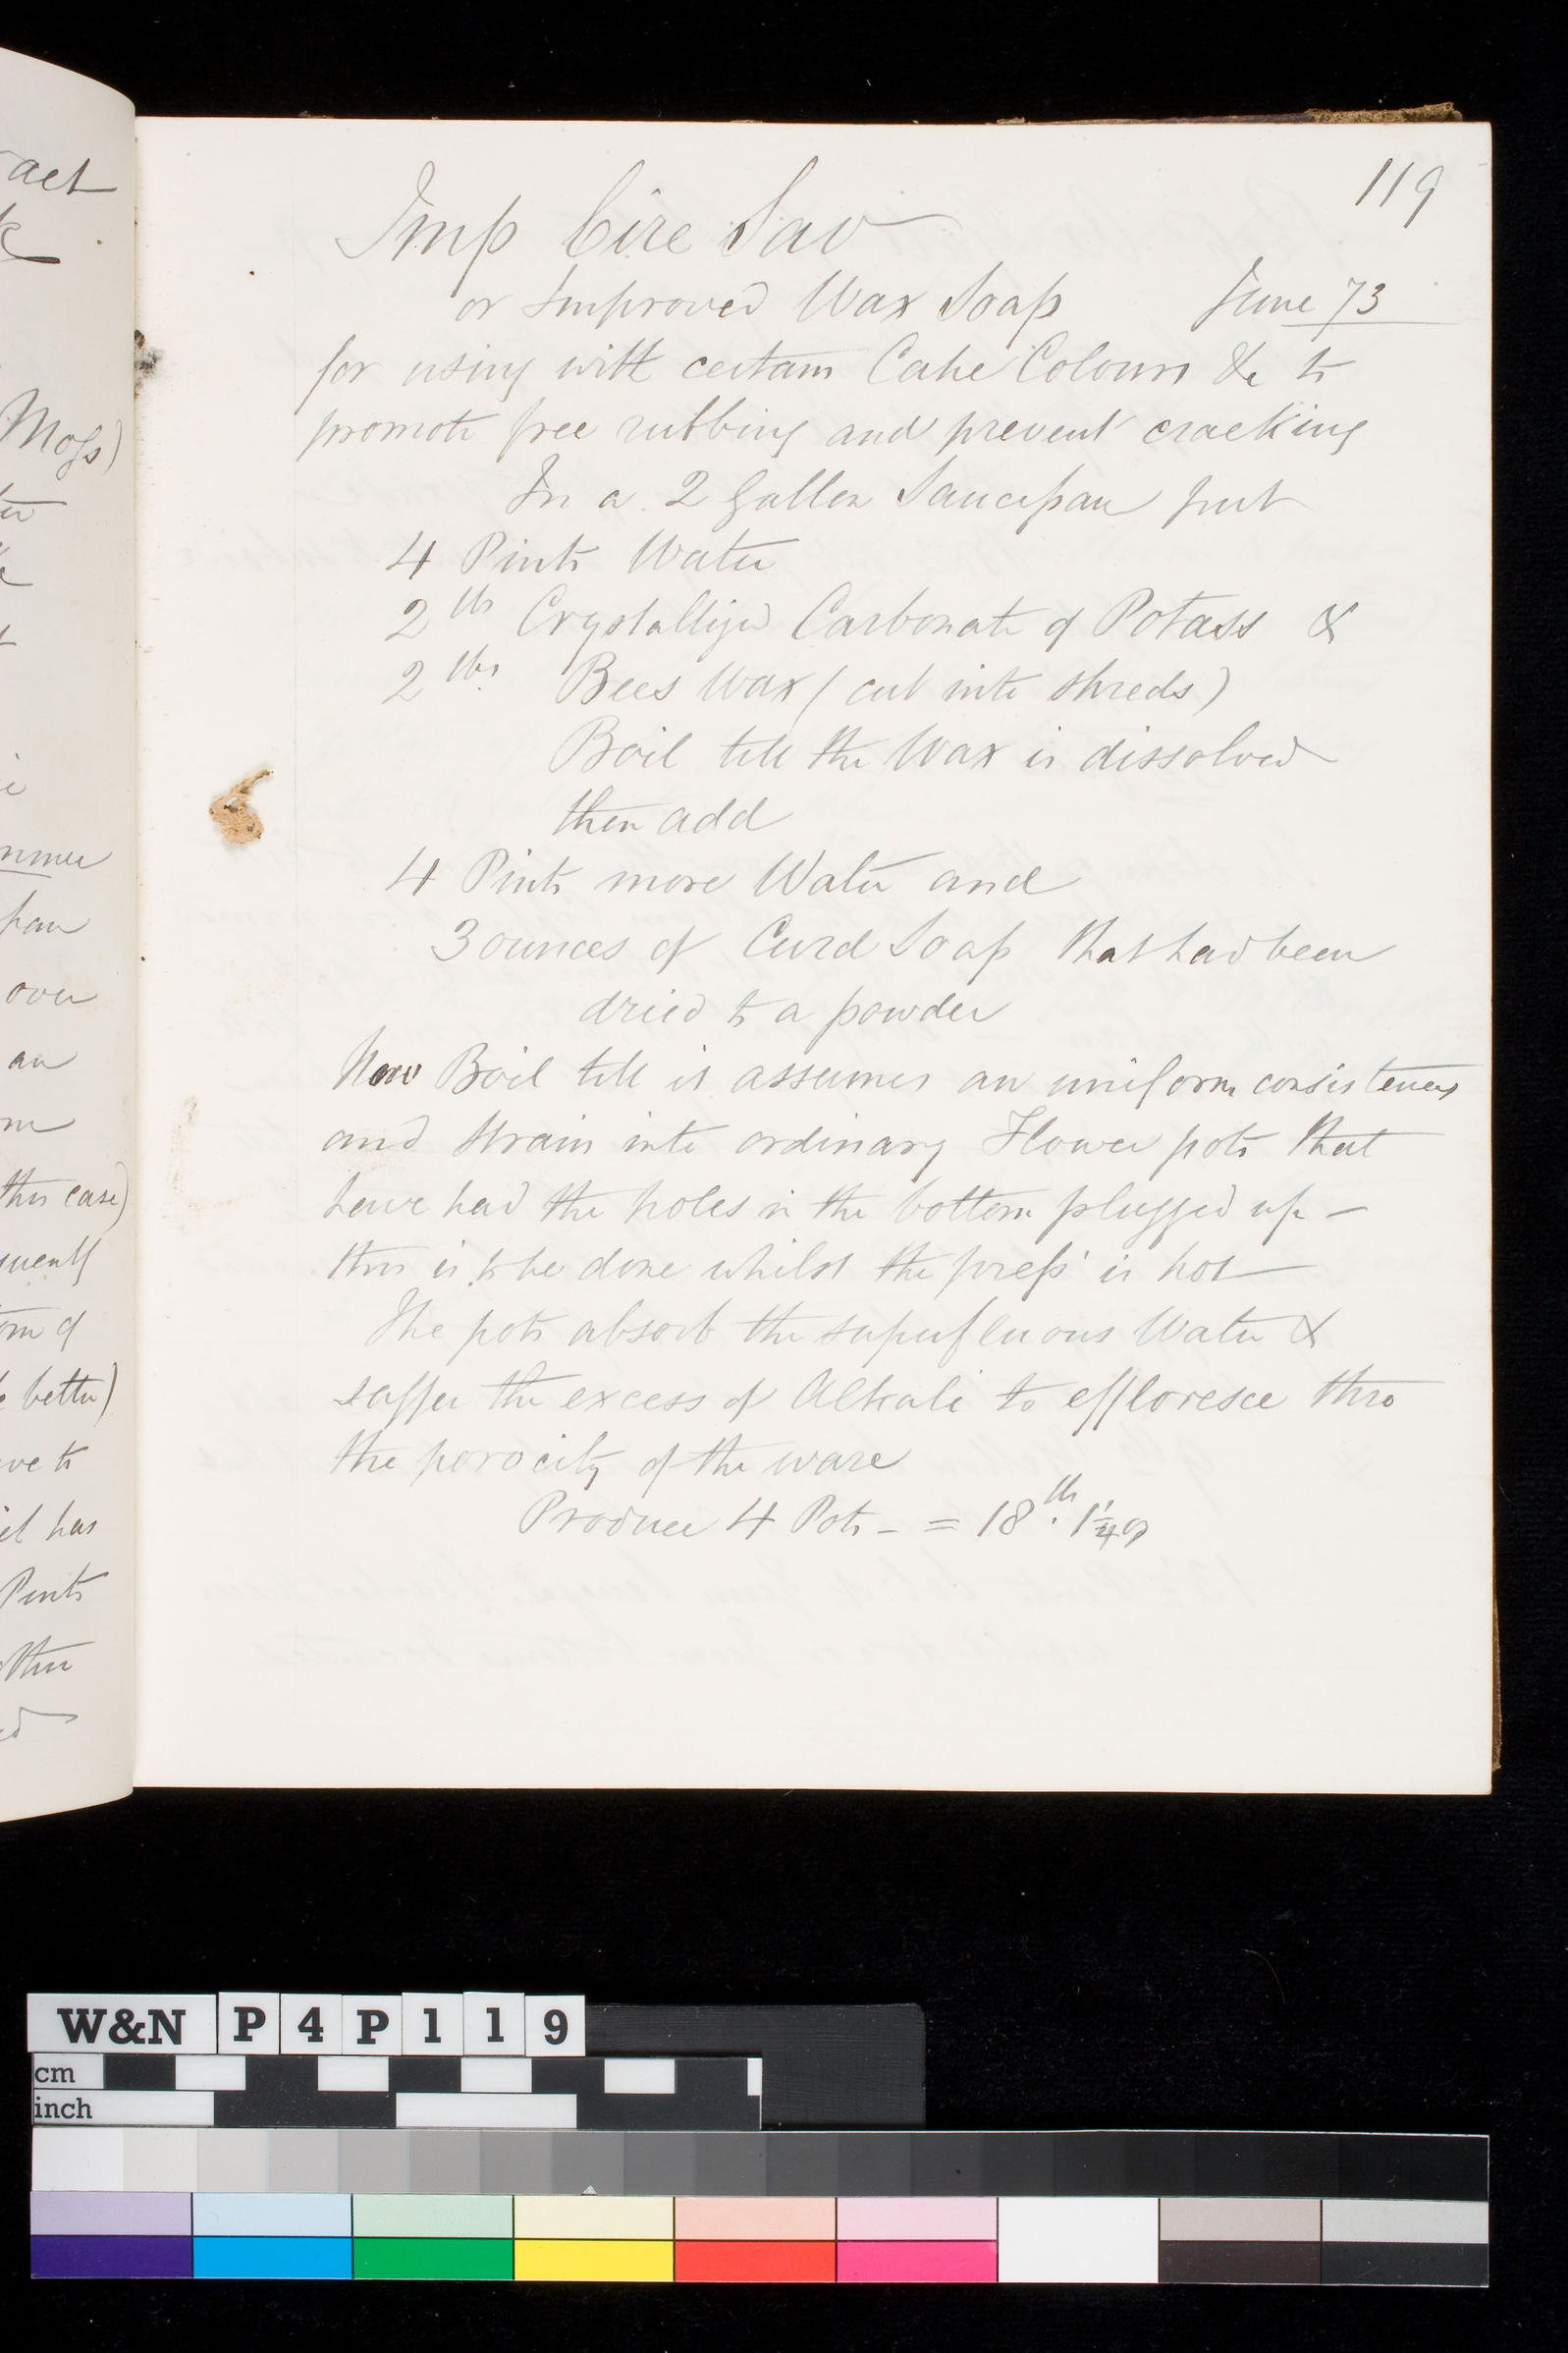 act
Moss)
nmer
pan
over
an
this case)
quently
om of
better)
ve to
Pints
119
Imp Cire Sav
or Improved Wax Soap June 73
for using with certain Cake Colours &c to
promote free rubbing and prevent cracking
In a 2 Gallon Saucepan put
4 Pints Water
2 lbs Crystallized Carbonate of Potass &
2 lbs Bees Wax (cut into shreds)
Boil till the Wax is dissolved
then add
4 Pints more Water and
3 ounces of Curd Soap that had been
dried to a powder
Now Boil till it assumes an uniform consistency
and strain into ordinary Flower pots that
have had the holes in the bottom plugged up —
this is to be done whilst the press is hot
The pots absorb the superfluous Water &
suffer the excess of Alkali to effloresce thro
the porocity of the ware
Produce 4 Pots — = 18 lb. 1 1/4 oz
W&N P4P119
cm
inch